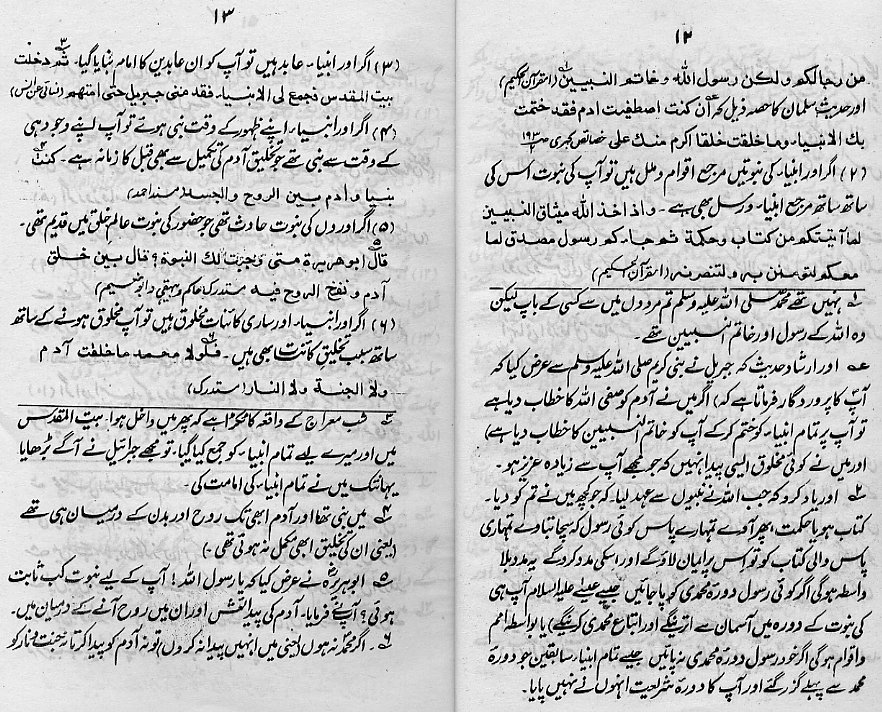 ۱۲
من رجالكم ولكن رسول الله وخاتم النبيين (القرآن الحکیم)
اور حدیث سلمان کا حصہ ذیل کہ ان كنت اصطفيت ادم فقد ختمت
بك الانبياء وما خلقت خلقا اكرم منك على خصائص کبری ص ۱۹۳
(۲) اگر اور انبیاء کی نبوتیں مرجع اقوام و ملل ہیں تو آپ کی نبوت اس کی
ساتھ ساتھ مرجع انبیاء و رسل بھی ہے۔ واذ اخذ الله ميثاق النبيين
لما آتيتكم من كتاب وحكمة ثم جاءكم رسول مصدق لما
معكم لتومنن به ولتنصرنه (القرآن الحکیم)
۱ نہیں تھے محمد صلی اللہ علیہ وسلم تم مردوں میں سے کسی کے باپ لیکن
وہ اللہ کے رسول اور خاتم النبیین تھے۔
اور ارشاد حدیث کہ جبریل نے نبی کریم صلی اللہ علیہ وسلم سے عرض کیا کہ
آپ کا پروردگار فرماتا ہے کہ) اگر میں نے آدم کو صفی اللہ کا خطاب دیا ہے
تو آپ پر تمام انبیاء کو ختم کر کے آپ کو خاتم النبیین کا خطاب دیا ہے)
اور میں نے کوئی مخلوق ایسی پیدا نہیں کہ جو مجھے آپ سے زیادہ عزیز ہو۔
۲ اور یاد کرو کہ جب اللہ نے نبیوں سے عہد لیا۔ کہ جو کچھ میں نے تم کو دیا۔
کتاب ہو یا حکمت، پھر آوے تمہارے پاس کوئی رسول کہ سچا بتاوے تمہاری
پاس والی کتاب کو تو اس پر ایمان لاؤگے اور اسکی مدد کروگے یہ مدد بلا
واسطہ ہوگی اگر کوئی رسول دورۂ محمدی کو پا جائیں جیسے عیسے علیہ السلام آپ ہی
کی نبوت کے دورہ میں آسمان سے اترینگے اور اتباع محمدی کرینگے) یا بواسطہ امم
واقوام ہوگی اگر خود رسول دورۂ محمدی نہ پائیں جیسے تمام انبیاء سابقین جو دورۂ
محمد سے پہلے گزر گئے اور آپ کا دورۂ شریعت انہوں نے نہیں پایا۔
۱۳
(۳) اگر اور انبیاء عابد ہیں تو آپ کو ان عابدین کا امام بنایا گیا۔ ثم دخلت
بيت المقدس فجمع لى الانبياء فقد منى جبريل حتى امتهم (نسائی عن انس)
(۴) اگر اور انبیاء اپنے ظہور کے وقت نبی ہوئے تو آپ اپنے وجود ہی
کے وقت سے نبی تھے جو تخلیق آدم کی تکمیل سے بھی قبل کا زمانہ ہے۔ كنت
نبيا وآدم بين الروح والجسد (مسند احمد)
(۵) اگر اوروں کی نبوت حادث تھی جو حضور کی نبوت عالم خلق میں قدیم تھی۔
قال ابو هريرة متى وجبت لك النبوة؟ قال بين خلق
آدم و نفخ الروح فيه مستدرک حاکم و بیہقی و ابو نعیم)
(۶) اگر اور انبیاء اور ساری کائنات مخلوق ہیں تو آپ مخلوق ہونے کے ساتھ
ساتھ سبب تخلیق کائنات بھی ہیں۔ فلولا محمد ما خلقت آدم
ولا الجنة ولا النار (مستدرک)
۳ شب معراج کے واقعہ کا ٹکڑا ہے کہ پھر میں داخل ہوا۔ بیت المقدس
میں اور میرے لیے تمام انبیاء کو جمع کیا گیا۔ تو مجھے جبرائیل نے آگے بڑھایا
یہانتک میں نے تمام انبیاء کی امامت کی۔
۴ میں نبی تھا اور آدم ابھی تک روح اور بدن کے درمیان ہی تھے
(یعنی ان کی تخلیق ابھی مکمل نہ ہوئی تھی۔)
۵ ابوہریرہؓ نے عرض کیا کہ یا رسول اللہ! آپ کے لیے نبوت کب ثابت
ہوئی؟ آپؐ نے فرمایا۔ آدم کی پیدائش اور ان میں روح آنے کے درمیان میں۔
۶ اگر محمدؐ نہ ہوں (یعنی میں انہیں پیدا نہ کروں) تو نہ آدم کو پیدا کرتا نہ جنت و نار کو